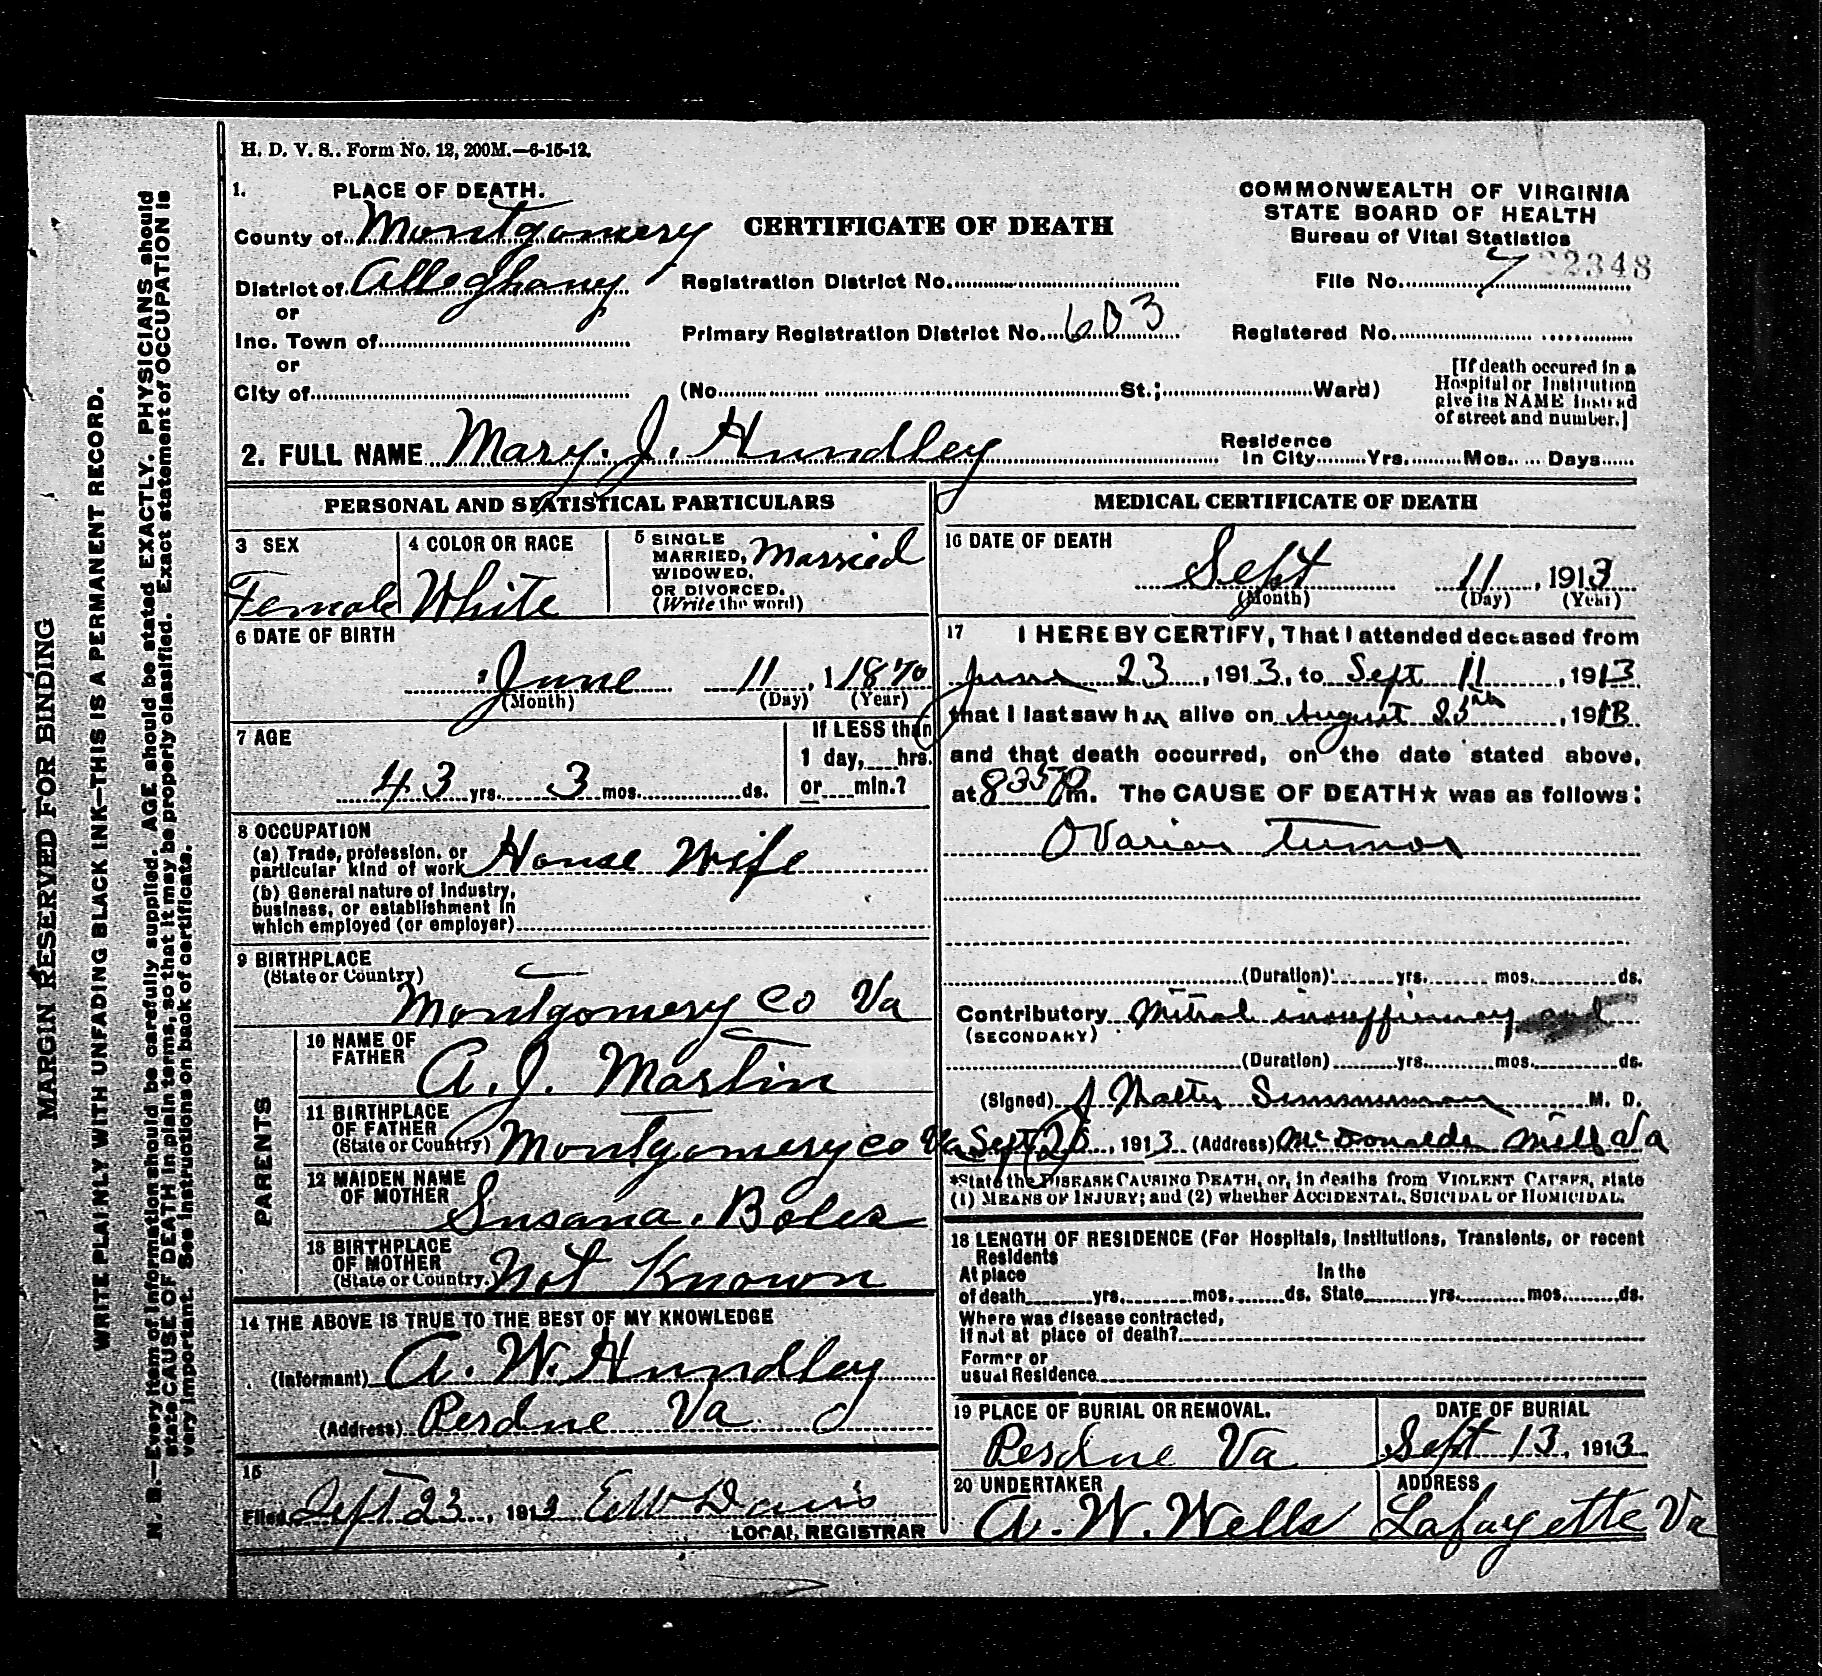 H. D. V. S.. Form No. 12, 200M.—6-15-12.
1. PLACE OF DEATH.
County of Montgomery
District of Alleghany
or
Inc. Town of
or
City of
CERTIFICATE OF DEATH
Registration District No.
Primary Registration District No. 603
(No. St.; Ward)
COMMONWEALTH OF VIRGINIA
STATE BOARD OF HEALTH
Bureau of Vital Statistics
File No. 7 22348
Registered No.
[If death occured in a
Hospital or Institution
give its NAME instead
of street and number.]
2. FULL NAME Mary. J. Hundley
Residence
in City Yrs. Mos. Days
PERSONAL AND STATISTICAL PARTICULARS
3 SEX
Female
4 COLOR OR RACE
White
5 SINGLE
MARRIED,
WIDOWED,
OR DIVORCED.
(Write the word)
Married
6 DATE OF BIRTH
June 11, 1 1870
(Month) (Day) (Year)
7 AGE
43 yrs. 3 mos. ds.
If LESS than
1 day, hrs.
or min.?
8 OCCUPATION
(a) Trade, profession, or
particular kind of work House Wife
(b) General nature of Industry,
business, or establishment in
which employed (or employer)
9 BIRTHPLACE
(State or Country)
Montgomery Co Va
PARENTS
10 NAME OF
FATHER
A. J. Martin
11 BIRTHPLACE
OF FATHER
(State or Country) Montgomery Co Va
12 MAIDEN NAME
OF MOTHER
Susana. Boles
13 BIRTHPLACE
OF MOTHER
(State or Country.) Not Known
14 THE ABOVE IS TRUE TO THE BEST OF MY KNOWLEDGE
(Informant) A. W. Hundley
(Address) Perdue Va
15
Filed Sept 23, 1913 EW Davis
LOCAL REGISTRAR
MEDICAL CERTIFICATE OF DEATH
16 DATE OF DEATH
Sept 11, 1913
(Month) (Day) (Year)
17 I HEREBY CERTIFY, That I attended deceased from
June 23, 1913, to Sept 11, 1913
that I last saw her alive on August 25th, 1913
and that death occurred, on the date stated above,
at 835 P m. The CAUSE OF DEATH★ was as follows:
Ovarian Tumor
(Duration) yrs. mos. ds.
Contributory Mitral insufficiency and
(SECONDARY)
(Duration) yrs. mos. ds.
(Signed) J Walter Simmerman M. D.
Sept 25, 1913 (Address) McDonalds Mill Va
*State the DISEASE CAUSING DEATH, or, in deaths from VIOLENT CAUSES, state
(1) MEANS OF INJURY; and (2) whether ACCIDENTAL, SUICIDAL or HOMICIDAL.
18 LENGTH OF RESIDENCE (For Hospitals, Institutions, Transients, or recent
Residents
At place In the
of death yrs. mos. ds. State yrs. mos. ds.
Where was disease contracted,
If not at place of death?
Former or
usual Residence
19 PLACE OF BURIAL OR REMOVAL.
Perdue Va
DATE OF BURIAL
Sept 13, 1913
20 UNDERTAKER
A. W. Wells
ADDRESS
Lafayette Va
MARGIN RESERVED FOR BINDING
WRITE PLAINLY WITH UNFADING BLACK INK—THIS IS A PERMANENT RECORD.
N. B.—Every item of information should be carefully supplied. AGE should be stated EXACTLY. PHYSICIANS should
state CAUSE OF DEATH in plain terms, so that it may be properly classified. Exact statement of OCCUPATION is
very important. See instructions on back of certificate.